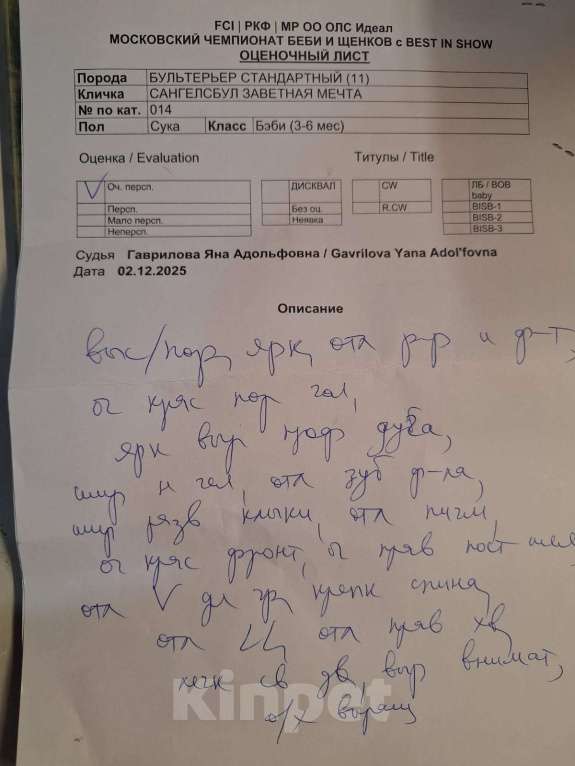 FCI | РКФ | МР ОО ОЛС Идеал
МОСКОВСКИЙ ЧЕМПИОНАТ БЕБИ И ЩЕНКОВ с BEST IN SHOW
ОЦЕНОЧНЫЙ ЛИСТ
Порода БУЛЬТЕРЬЕР СТАНДАРТНЫЙ (11)
Кличка САНГЕЛСБУЛ ЗАВЕТНАЯ МЕЧТА
№ по кат. 014
Пол Сука Класс Бэби (3-6 мес)
Оценка / Evaluation Титулы / Title
V Оч. персп. ДИСКВАЛ CW ЛБ / BOB baby
Персп. Без оц. R.CW BISB-1
Мало персп. Неявка BISB-2
Неперсп. BISB-3
Судья Гаврилова Яна Адольфовна / Gavrilova Yana Adol'fovna
Дата 02.12.2025
Описание
выс/пор, ярк, отл р-р и ф-т,
оч крас пор гол,
ярк выр
шир н чел, отл зуб ф-ла,
шир разв клыки, отл пигм,
оч крас фронт, оч прав пост шеи,
отл V дл гр, крепк спина,
отл LL, отл прав хв,
легк св дв, выр внимат,
о/х выращ
kinpet